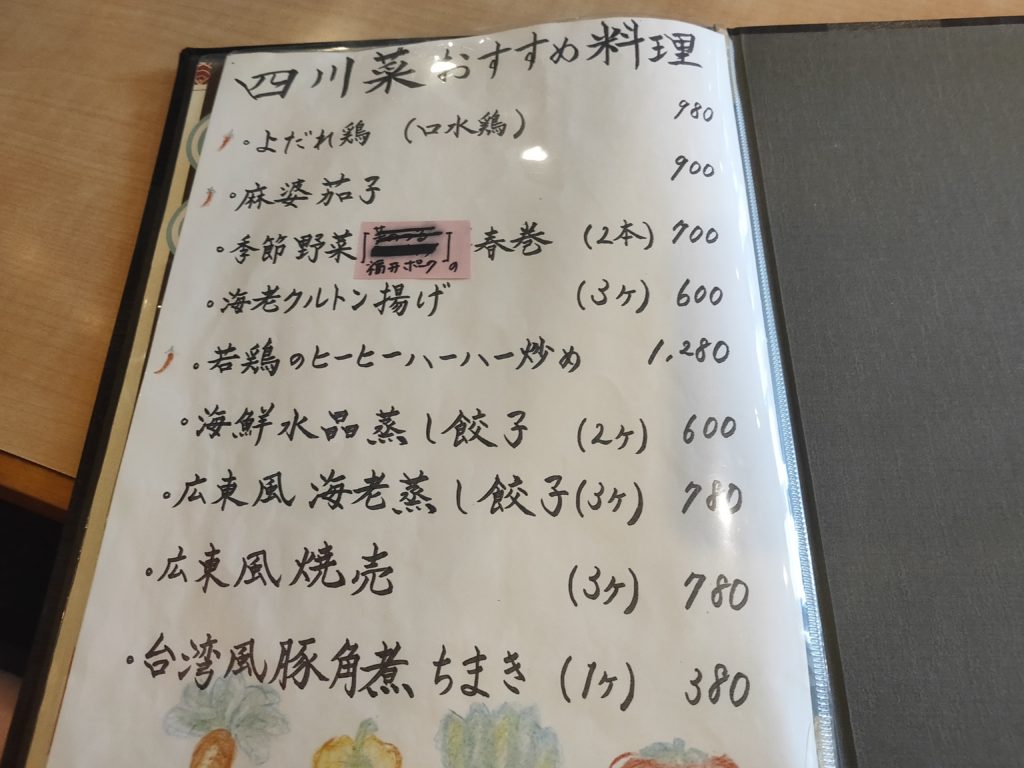 四川菜おすすめ料理
・よだれ鶏 (口水鶏) 980
・麻婆茄子 900
・季節野菜[福井ポークの]春巻 (2本) 700
・海老クルトン揚げ (3ヶ) 600
・若鶏のヒーヒーハーハー炒め 1,280
・海鮮水晶蒸し餃子 (2ヶ) 600
・広東風 海老蒸し餃子(3ヶ) 780
・広東風焼売 (3ヶ) 780
・台湾風豚角煮ちまき (1ヶ) 380